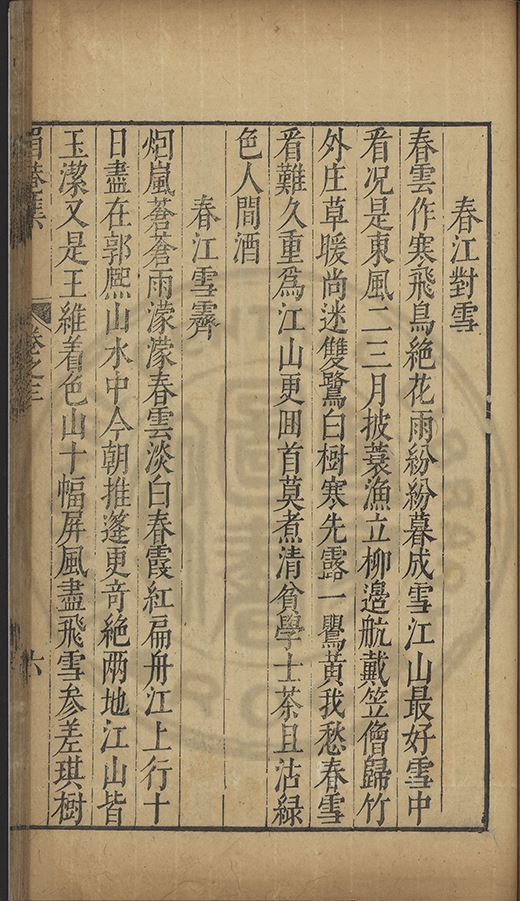 春江對雪
春雲作寒飛鳥絶花雨紛紛暮成雪江山最好雪中
看况是東風二三月披蓑漁立柳邊航戴笠僧歸竹
外庄草暖尚迷雙鷺白樹寒先露一鸎黃我愁春雪
看難久重爲江山更囬首莫煮清貧學士茶且沽綠
色人間酒
春江雪霽
烟嵐蒼蒼雨濛濛春雲淡白春霞紅扁舟江上行十
日盡在郭熈山水中今朝推篷更竒絶兩地江山皆
玉潔又是王維着色山十幅屏風盡飛雪参差琪樹
卷之三
六